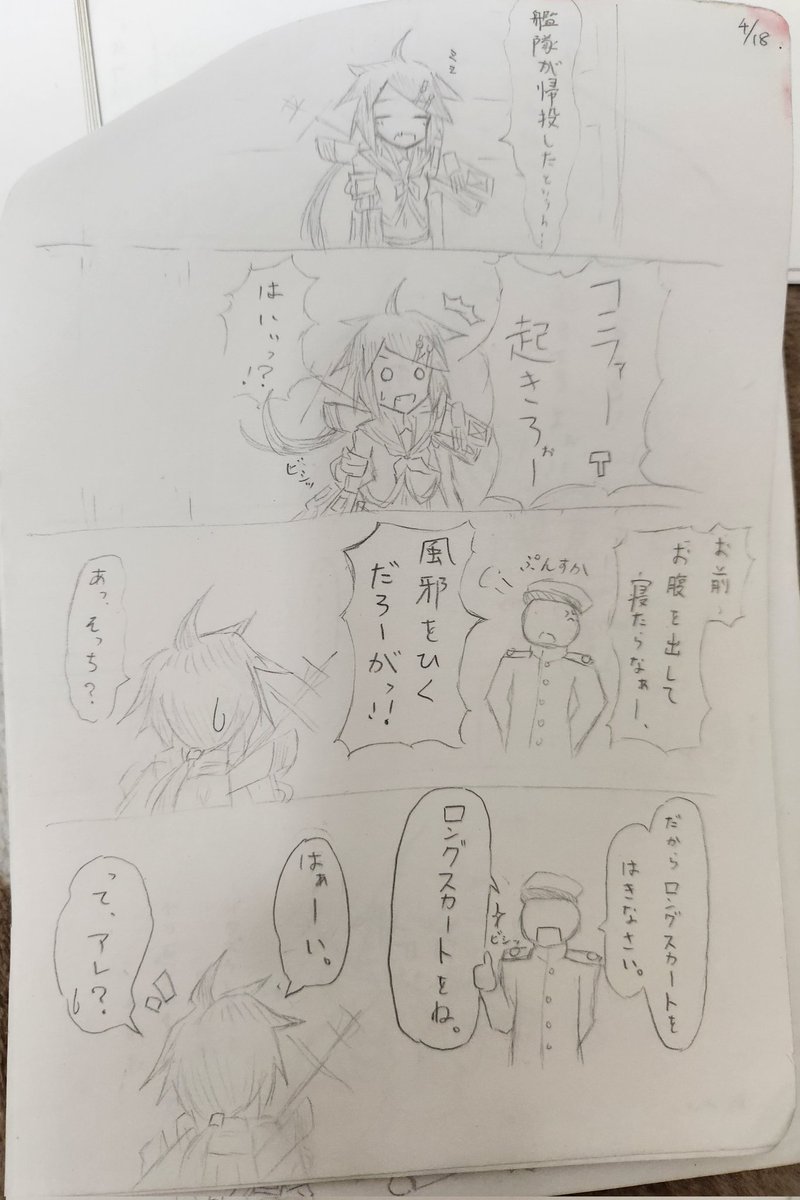 4/18
艦隊が帰投したというのに…
コラァー
起きろぉー
はいぃっ!?
ビシッ
お前…
お腹を出して
寝たらなぁー、
ぷんすか
風邪をひく
だろーがっ!!
あっ、そっち?
だからロングスカートを
はきなさい。
ビシッ
ロングスカートをね。
はぁーい。
って、アレ?